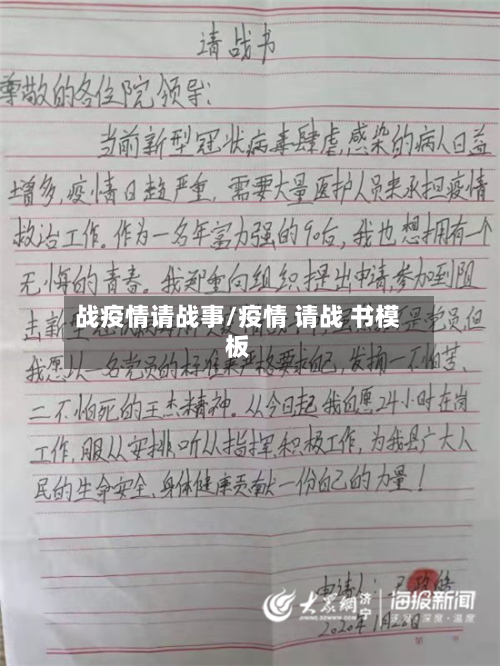 请战书
尊敬的各位院领导:
当前新型冠状病毒肆虐,感染的病人日益
增多,疫情日趋严重,需要大量医护人员来承担疫情
救治工作。作为一名年富力强的90后,我也想拥有一个
无悔的青春。我郑重向组织提出申请,参加到阻
击新
是党员但
战疫情请战事/疫情 请战 书模
板
我愿以一名党员的标准来严格要求自己,发扬一不怕苦、
二不怕死的王杰精神。从今日起我自愿24小时在岗
工作,服从安排,听从指挥,积极工作,为我县广大人
民的生命安全、身体健康贡献一份自己的力量!
申请人:
2020年1月26日
大众网 济宁
海报新闻
深度·温度
第 页